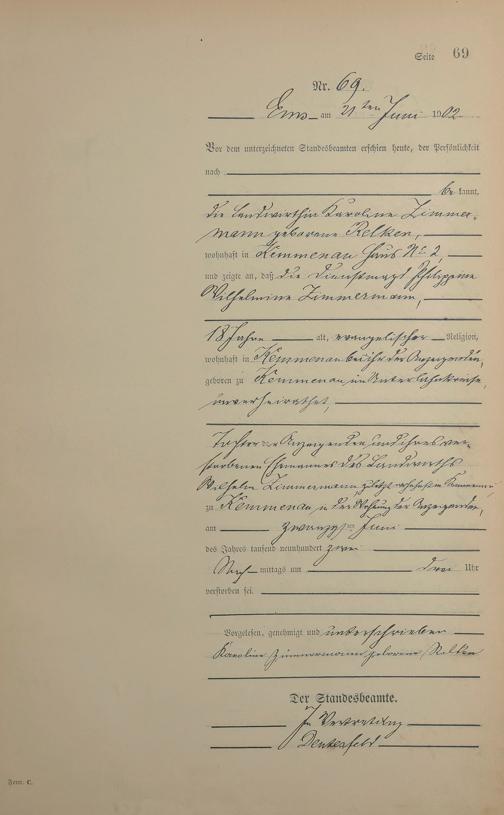 Seite 69
Nr. 69.
Ems am 21ten Juni 1902
Vor dem unterzeichneten Standesbeamten erschien heute, der Persönlichkeit
nach
bekannt,
die Landwirthin Karoline Zimmer-
mann geborene Relken,
wohnhaft in Kemmenau Haus No 2,
und zeigte an, daß die Dienstmagd Philippine
Wilhelmine Zimmermann,
18 Jahre alt, evangelischer Religion,
wohnhaft in Kemmenau bei ihr der Anzeigenden,
geboren zu Kemmenau im Unterlahnkreise,
unverheirathet,
Tochter der Anzeigenden und ihres ver-
storbenen Ehemannes des Landwirths
Wilhelm Zimmermann zuletzt wohnhaft in Kemmenau
zu Kemmenau in der Wohnung der Anzeigenden,
am zwanzigsten Juni
des Jahres tausend neunhundert zwei
Nachmittags um drei Uhr
verstorben sei.
Vorgelesen, genehmigt und unterschrieben
Karoline Zimmermann geborene Relken
Der Standesbeamte.
In Vertretung
Form. C.